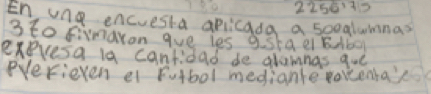 2256
En una encuesta aplicada a 500 alumnas
370 firmaron que les gusta el Futbol
expresa la cantidad de alumnas que
Prefieren el Futbol mediante